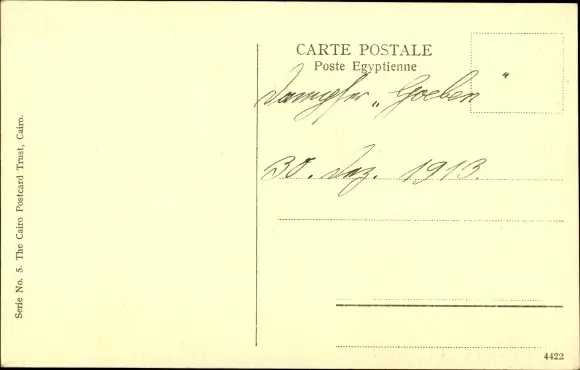 CARTE POSTALE
Poste Egyptienne
Dampfer „Goeben"
30. Dez. 1913.
Serie No. 5. The Cairo Postcard Trust, Cairo.
4422